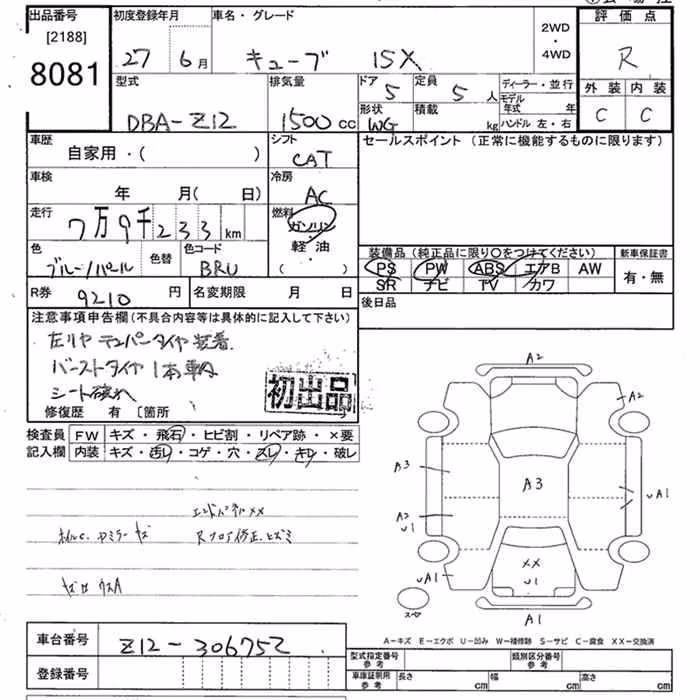 出品番号
[2188]
8081
初度登録年月
27 6月
車名・グレード
キューブ 15X
2WD
・
4WD
評価点
R
外装 内装
C C
型式
DBA-Z12
排気量
1500cc
ドア
5
定員
5人
形状
WG
積載
kg
ディーラー・並行
モデル年式 年
ハンドル 左・右
車歴
自家用・( )
シフト
CAT
セールスポイント(正常に機能するものに限ります)
車検
年 月( 日)
冷房
AC
走行
7万9千233km
燃料
ガソリン
軽・油
( )
色
ブルー/パール
色替
色コード
BRU
装備品(純正品に限り○をつけてください)
PS PW ABS エアB AW
SR ナビ TV カワ
新車保証書
有・無
R券
9210円
名変期限 月 日
後日品
注意事項申告欄(不具合内容等は具体的に記入して下さい)
左リヤ テンパータイヤ装着
バーストタイヤ 1本車内
シート破れ
初出品
修復歴 有 〔箇所
検査員
記入欄
FW キズ・飛石・ヒビ割・リペア跡・×要
内装 キズ・汚レ・コゲ・穴・スレ・キレ・破レ
エンドパネルXX
Rフロア修正、ヒズミ
A2
A2
A3
A3
UA1
A2
U1
XX
U1
UA1
スペア
A1
車台番号
Z12-306752
登録番号
A-キズ E-エクボ U-凹み W-補修跡 S-サビ C-腐食 XX-交換済
型式指定番号
参考
類別区分番号
参考
車庫証明用
参考
長さ cm
幅 cm
高さ cm